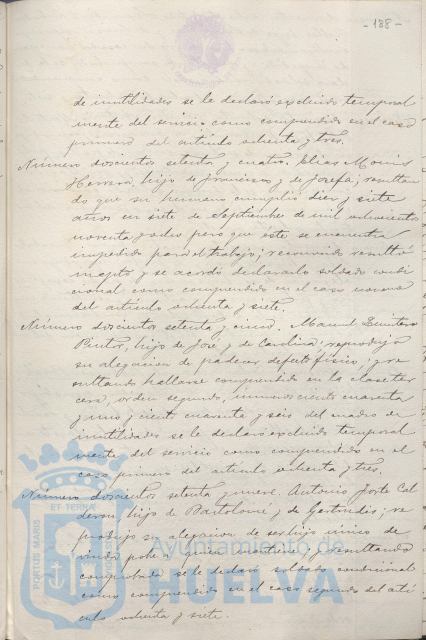 - 188 -
de inutilidades se le declaró excluido temporal
mente del servicio como comprendido en el caso
primero del artículo ochenta y tres.
Número doscientos setenta y cuatro. Elias
Herrero, hijo de Francisco y de Josefa; resultan
do que su hermano cumplió diez y siete
años en siete de Septiembre de mil ochocientos
noventa y ocho pero que éste se encuentra
impedido para el trabajo; reconocido resultó
inepto y se acordó declararlo soldado condi
cional como comprendido en el caso noveno
del artículo ochenta y siete.
Número doscientos setenta y cinco. Manuel
Pinto, hijo de José y de Carolina, reprodujo
su alegacion de padecer defecto físico, y re
sultando hallarse comprendido en la clase ter
cera, orden segundo, números ciento cuarenta
y uno y ciento cuarenta y seis del cuadro de
inutilidades se le declaró excluido temporal
mente del servicio como comprendido en el
caso primero del artículo ochenta y tres.
Número doscientos setenta y nueve. Antonio Jorte Cal
deron hijo de Bartolomé y de Gertrudis; re
produjo su alegacion de ser hijo único de
viuda pobre á quien mantiene y resultando
comprobado se le declaró soldado condicional
como comprendido en el caso segundo del artí
culo ochenta y siete.
PORTUS MARIS
ET TERRAE
CUSTODIA
Ayuntamiento de
HUELVA